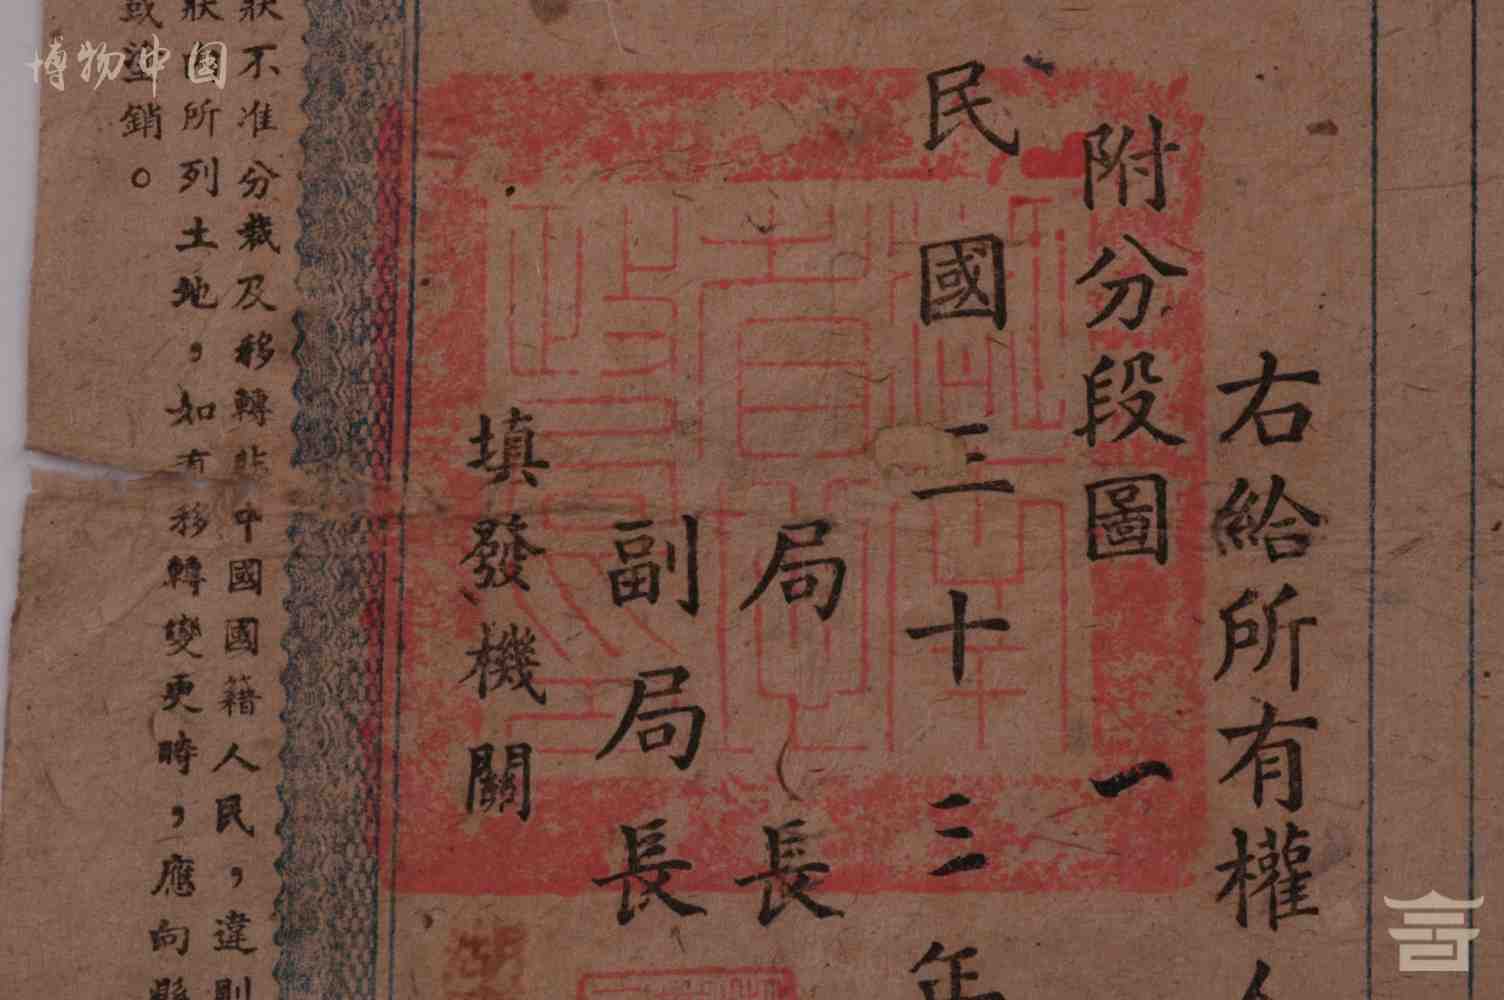 博物中国
右給所有權人
附分段圖 一
民國三十三年
局長
副局長
填發機關
狀不准分裁及移轉非中國國籍人民，違則
狀內所列土地，如有移轉變更時，應向縣
或塗銷。